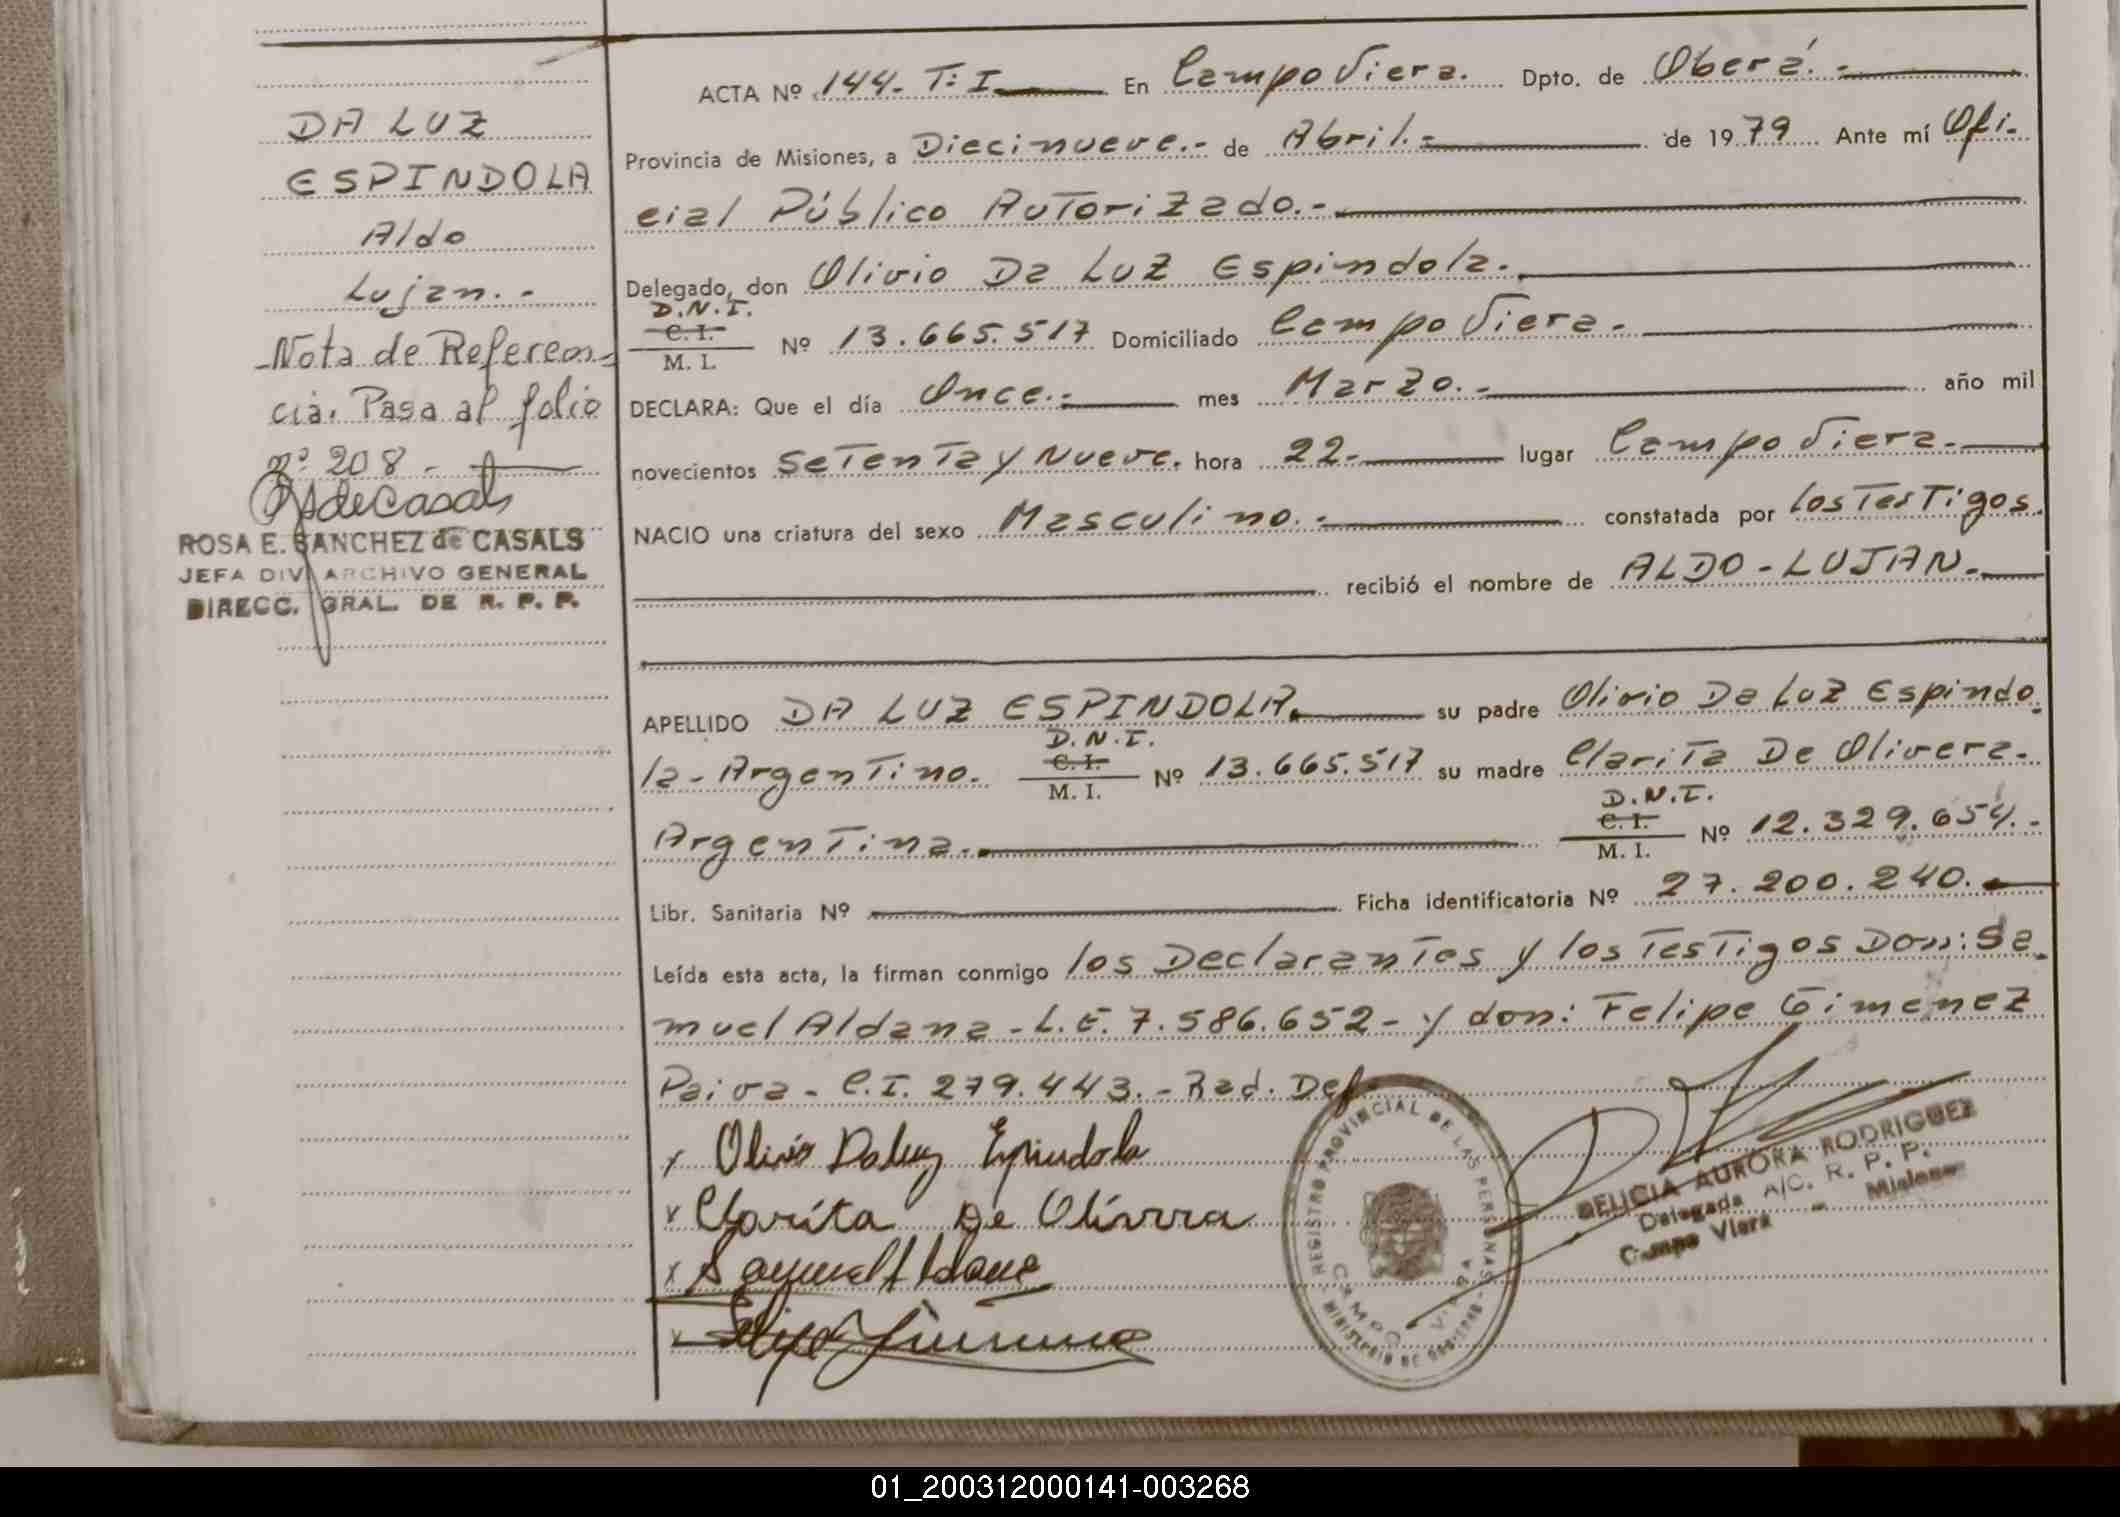 DA LUZ
ESPINDOLA
Aldo
Lujan.-
-Nota de Referen-
cia. Pasa al folio
nº 208.-
RSdeCasals
ROSA E. SANCHEZ de CASALS
JEFA DIV. ARCHIVO GENERAL
DIRECC. GRAL. DE R. P. P.
ACTA Nº 144.- T: I. En Campo Viera. Dpto. de Oberá.-
Provincia de Misiones, a Diecinueve.- de Abril.- de 1979 Ante mí Ofi-
cial Público Autorizado.-
Delegado, don Olivio Da Luz Espindola.-
D.N.I.
C. I.
M. I. Nº 13.665.517 Domiciliado Campo Viera.-
DECLARA: Que el día Once.- mes Marzo.- año mil
novecientos Setenta y Nueve. hora 22.- lugar Campo Viera.-
NACIO una criatura del sexo Masculino.- constatada por los Testigos.
recibió el nombre de ALDO-LUJAN.-
APELLIDO DA LUZ ESPINDOLA. su padre Olivio Da Luz Espindo-
D.N.I.
C. I.
la-Argentino. M. I. Nº 13.665.517 su madre Clarita De Olivera.-
D.N.I.
C. I.
Argentina.- M. I. Nº 12.329.654.-
Libr. Sanitaria Nº Ficha identificatoria Nº 27.200.240.-
Leída esta acta, la firman conmigo los Declarantes y los Testigos Don: Sa-
muel Aldana-L.E. 7.586.652- y don: Felipe Gimenez
Paiva- C.I. 279.443.- Rad. Def.
x Olivio Daluz Espindola
x Clarita De Olivera
x Samuel Aldana
x Felipe Gimenez
REGISTRO PROVINCIAL DE LAS PERSONAS
MINISTERIO DE GOBIERNO
CAMPO VIERA
DELICIA AURORA RODRIGUEZ
Delegada A/C. R. P. P.
Campo Viera - Misiones
01_200312000141-003268